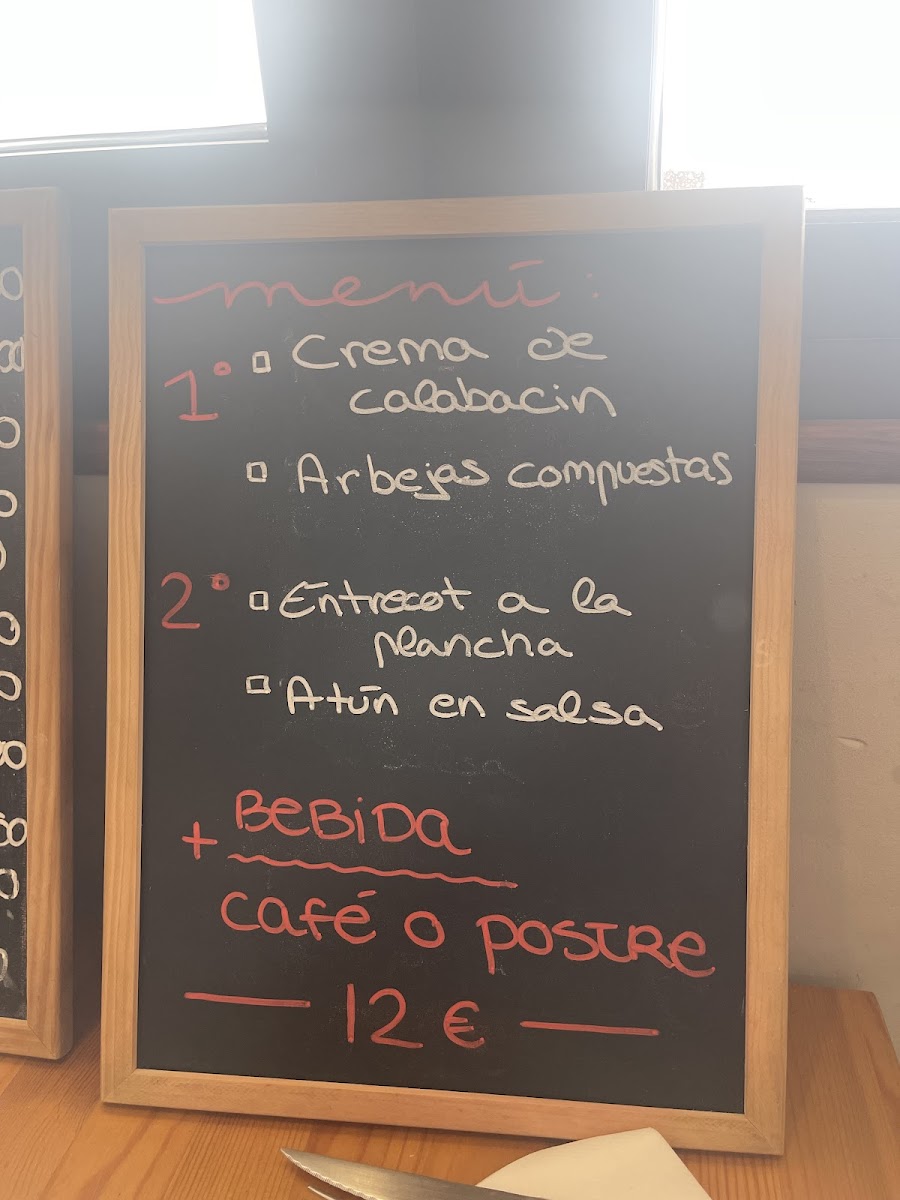 menú:
1º □ Crema de
calabacin
□ Arbejas compuestas
2º □ Entrecot a la
plancha
□ Atún en salsa
+ BeBiDa
café o postre
— 12 € —